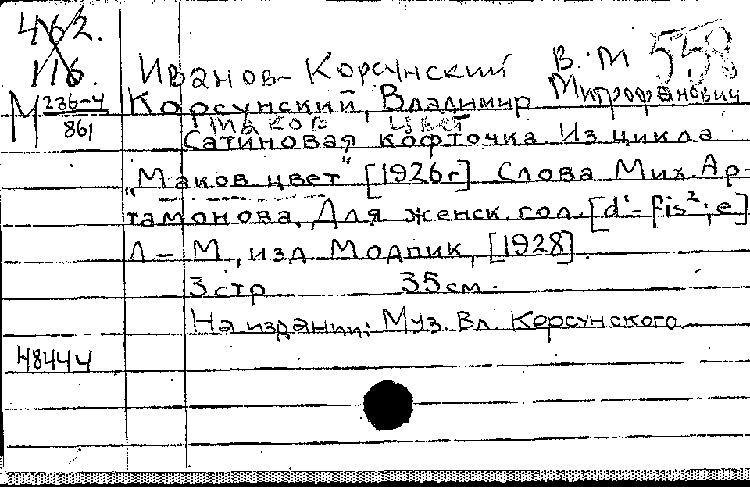 462.
116.
558
Иванов-Корсунский В. М
М 236-4/861
Корсунский, Владимир Митрофанович
Маков цвет
Сатиновая кофточка. Из цикла
"Маков цвет" [1926г] Слова Мих. Ар-
тамонова. Для женск. гол. [d¹-fis²; e]
Л-М, изд. Модпик, [1928].
3 стр 35 см.
На издании: Муз. Вл. Корсунского
48444